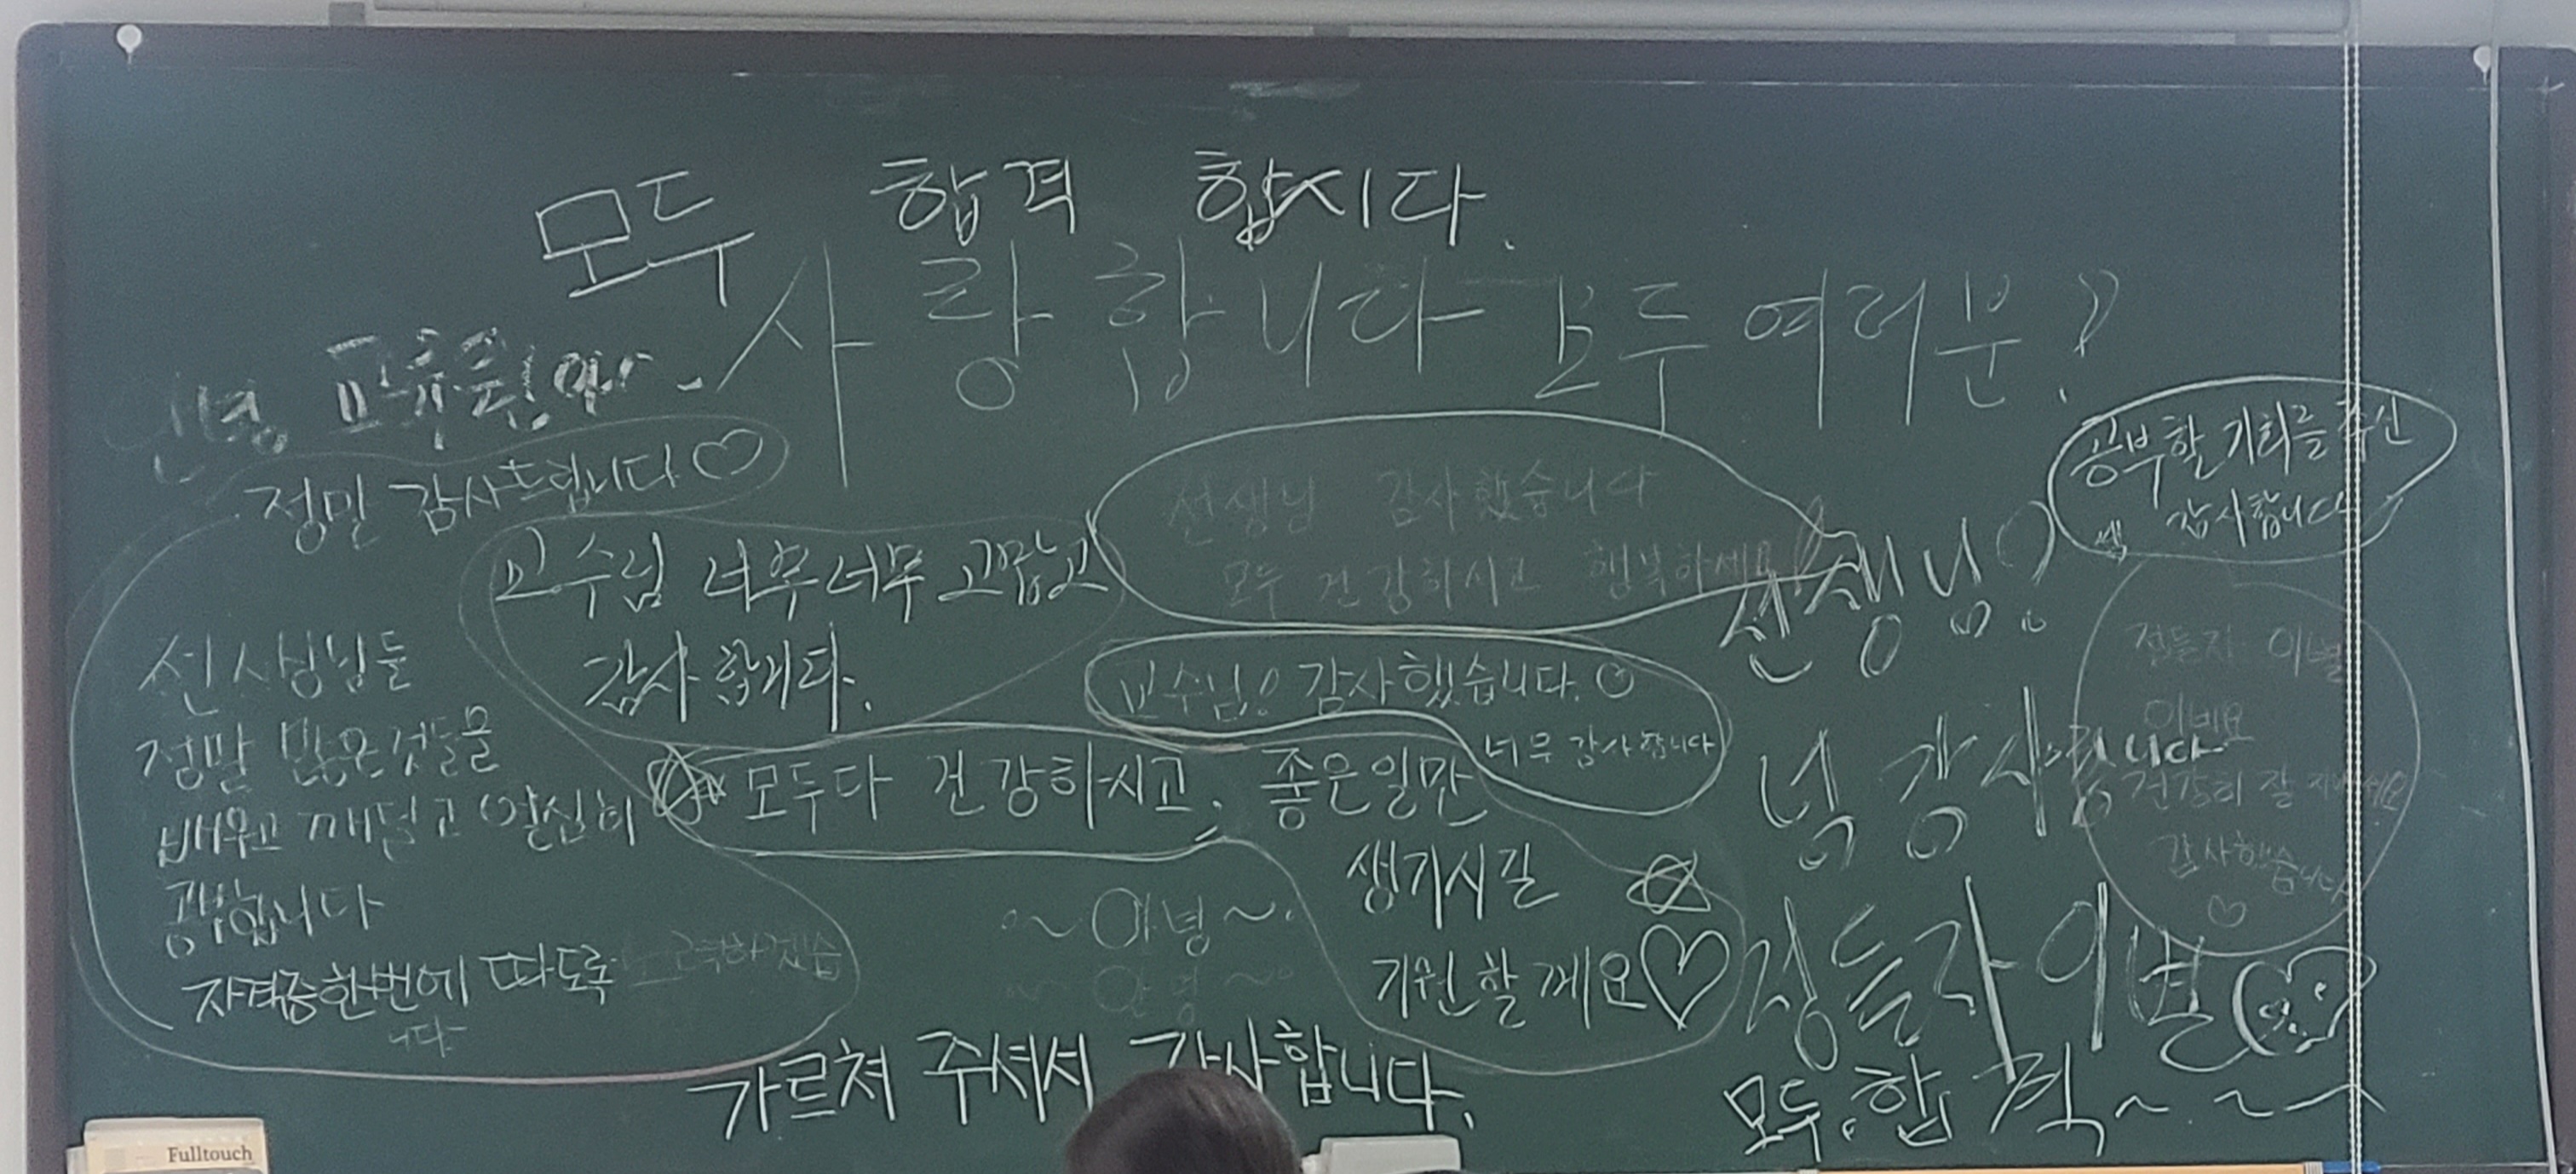 모두 합격 합시다.
사랑합니다 모두 여러분?
안녕 교육원아~
정말 감사드립니다♡
선생님들
정말 많은것들을
배우고 깨닫고 열심히
공부합니다
자격증한번에 따도록 노력하겠습
니다
교수님 너무너무 고맙고
감사 합니다.
선생님 감사했습니다
모두 건강하시고 행복하세요
교수님! 감사했습니다.♡
너무 감사합니다
모두다 건강하시고, 좋은일만
생기시길
기원할께요♡
~안녕~
~안녕~
가르쳐 주셔서 감사합니다.
공부할 기회를 주신
감사합니다
선생님?
넘 감사합니다
정들자 이별
이네요
건강히 잘 지내세요
감사했습니다
♡
정들자 이별
모두 합격~~
Fulltouch